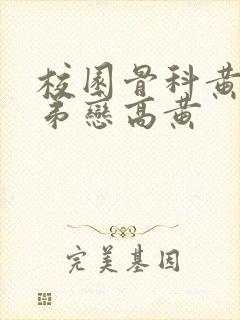 校園骨科黃
弟戀高黃
完美基因